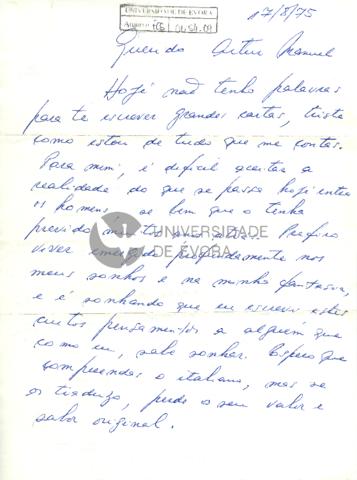 17/8/75
UNIVERSIDADE DE ÉVORA
Arquivo
Querido Artur Manuel
Hoje não tenho palavras
para te escrever grandes cartas, triste
como estou de tudo que me contas.
Para mim, é difícil aceitar a
realidade do que se passa hoje entre
os homens se bem que o tenha
previsto muitos anos
UNIVERSIDADE
DE ÉVORA
viver profundamente nos
meus sonhos e na minha fantasia,
e é sonhando que eu escrevi estes
curtos pensamentos a alguém que
como eu, sabe sonhar. Espero que
compreendas o italiano, mas se
os traduzo, perde o seu valor e
sabor original.